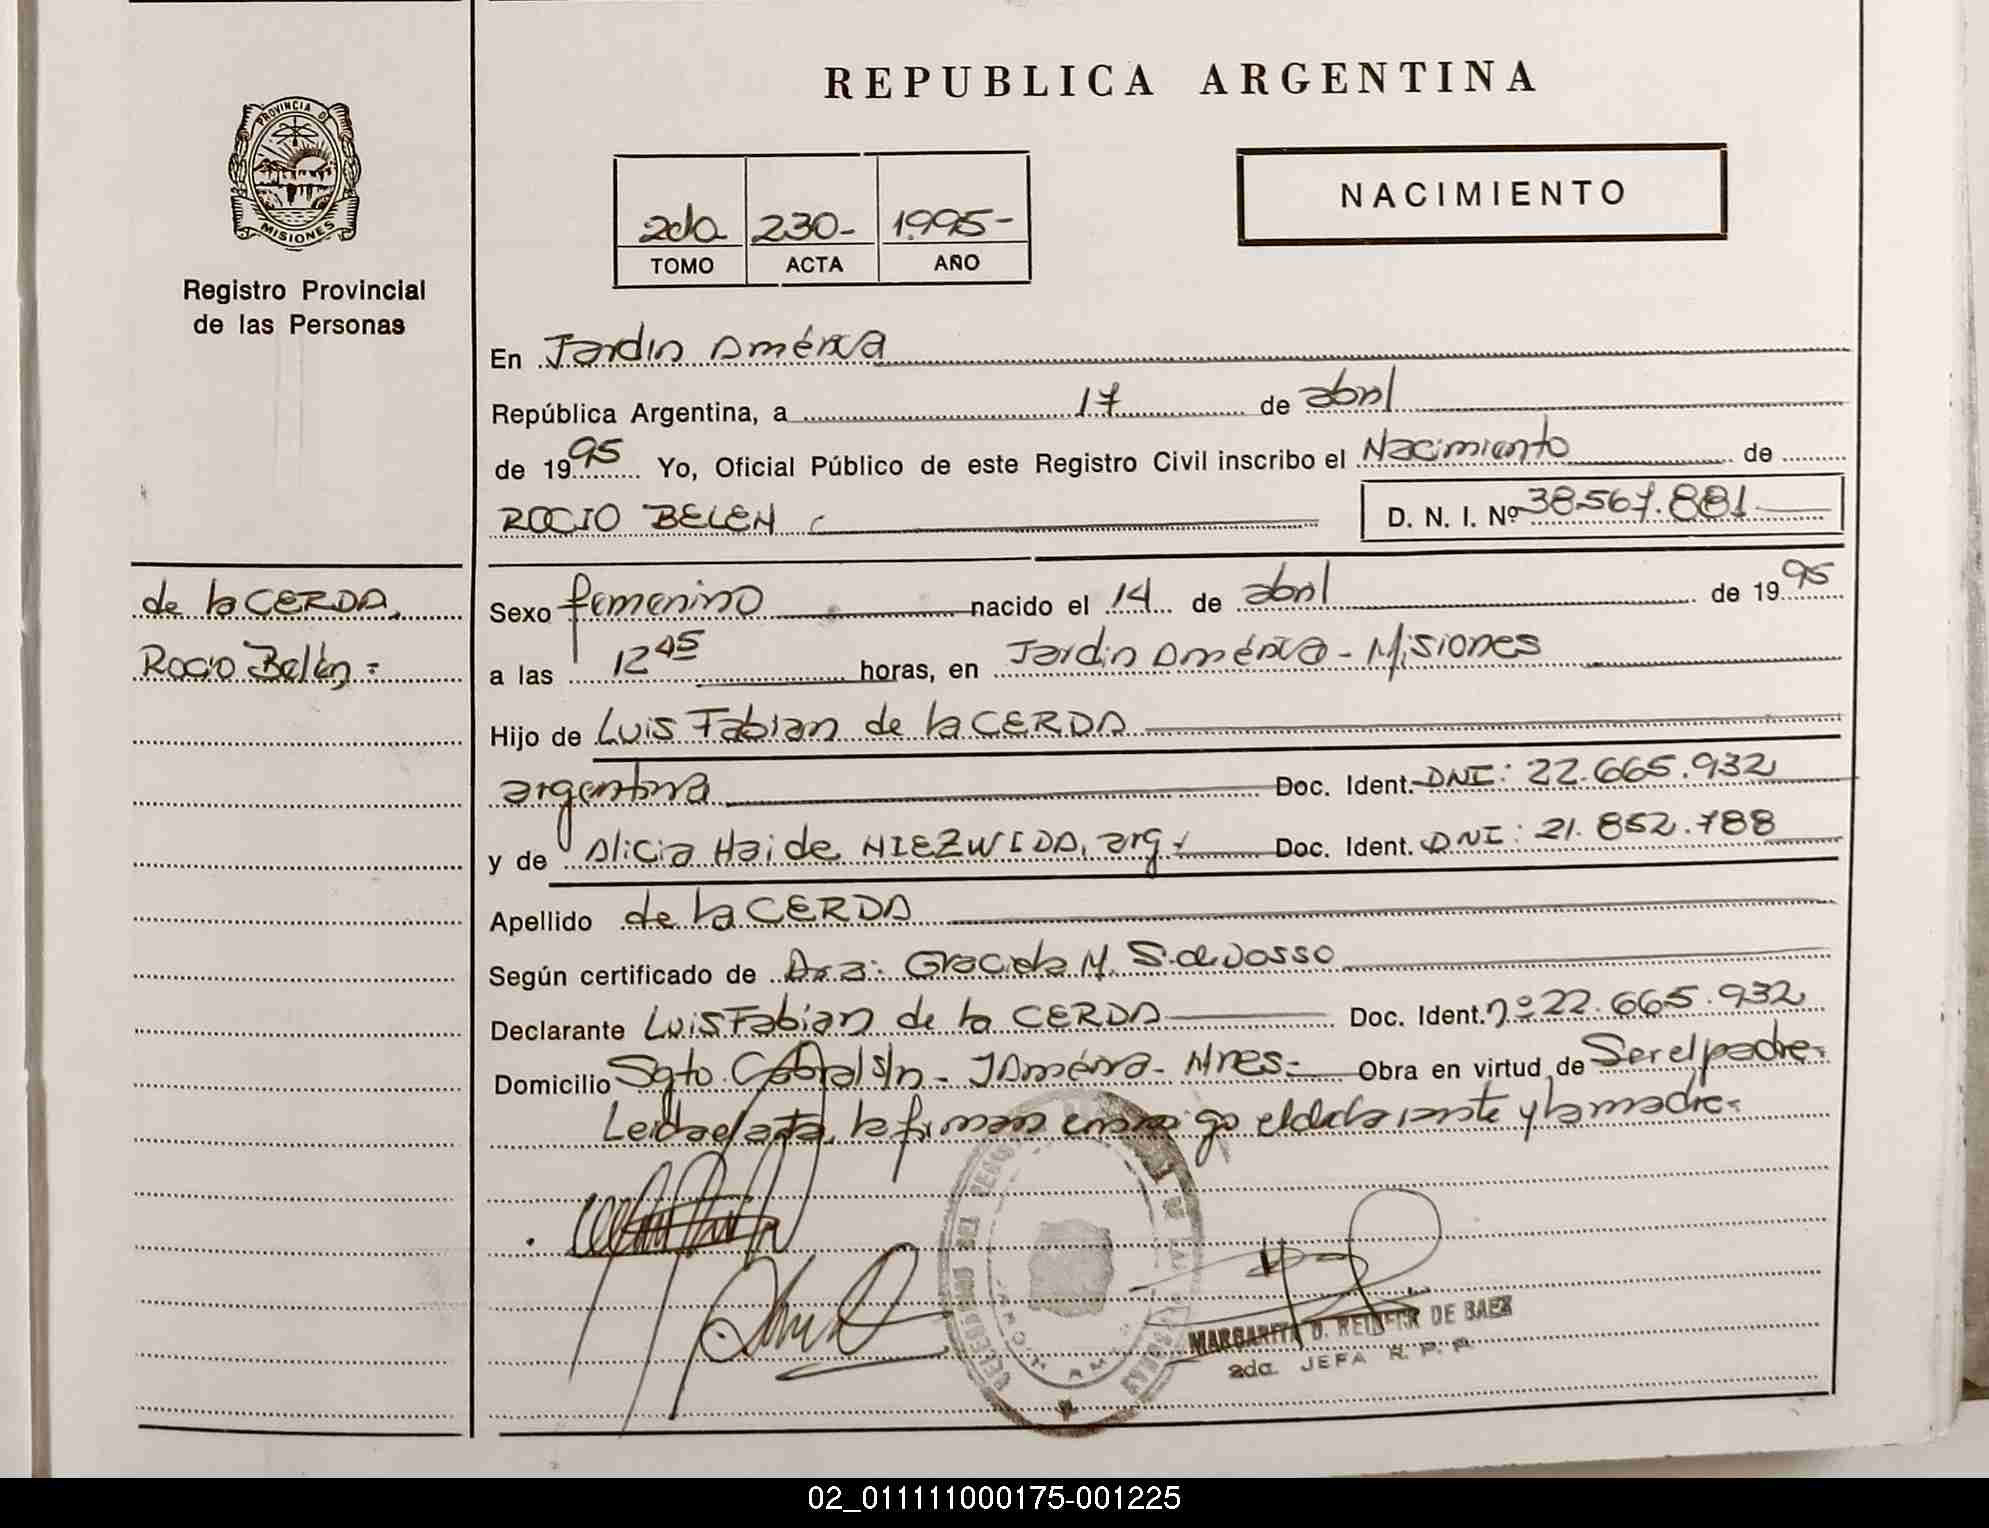 REPUBLICA ARGENTINA
PROVINCIA DE
MISIONES
Registro Provincial
de las Personas
NACIMIENTO
2do 230- 1995-
TOMO ACTA AÑO
En Jardin América
República Argentina, a 17 de abril
de 1995 Yo, Oficial Público de este Registro Civil inscribo el Nacimiento de
ROCIO BELEN D. N. I. Nº 38.567.881
de la CERDA,
Rocio Belén =
Sexo femenino nacido el 14 de abril de 1995
a las 12 45 horas, en Jardin América - Misiones
Hijo de Luis Fabian de la CERDA
argentina Doc. Ident. DNI: 22.665.932
y de Alicia Haide NIEZWIDA, arg. Doc. Ident. DNI: 21.852.788
Apellido de la CERDA
Según certificado de Dra: Graciela M. S. de Dosso
Declarante Luis Fabian de la CERDA Doc. Ident. nº 22.665.932
Domicilio Sgto. Cabral s/n - J América - Mnes - Obra en virtud de Ser el padre -
Leida el acta, la firman conmigo el declarante y la madre -
MARGARITA D. DE BAEZ
2da. JEFA R. P. P.
02_011111000175-001225